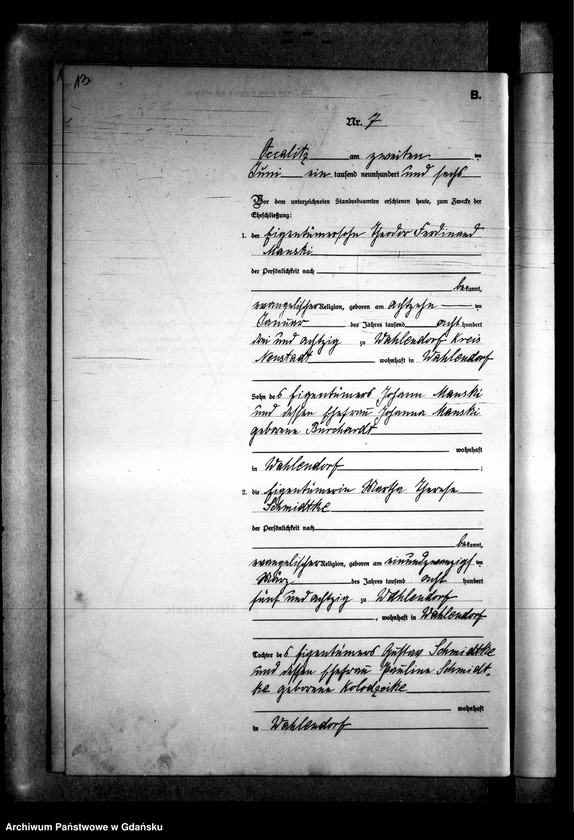 13
B.
Nr. 7
Occalitz am zweiten ten
Juni ein tausend neunhundert und sechs
Vor dem unterzeichneten Standesbeamten erschienen heute, zum Zwecke der
Eheschließung:
1. der Eigentümersohn Theodor Ferdinand
Manski
der Persönlichkeit nach
bekannt,
evangelischer Religion, geboren am achtzehn ten
Januar des Jahres tausend acht hundert
drei und achtzig zu Wahlendorf Kreis
Neustadt wohnhaft in Wahlendorf
Sohn des Eigentümers Johann Manski
und dessen Ehefrau Johanna Manski
geborene Burchardt
wohnhaft
in Wahlendorf ;
2. die Eigentümerin Martha Therese
Schmidtke
der Persönlichkeit nach
bekannt,
evangelischer Religion, geboren am einundzwanzigsten
März des Jahres tausend acht hundert
fünf und achtzig zu Wahlendorf
, wohnhaft in Wahlendorf
Tochter des Eigentümers Gustav Schmidtke
und dessen Ehefrau Pauline Schmidt-
ke geborene Kolodzeike
wohnhaft
in Wahlendorf
Archiwum Państwowe w Gdańsku